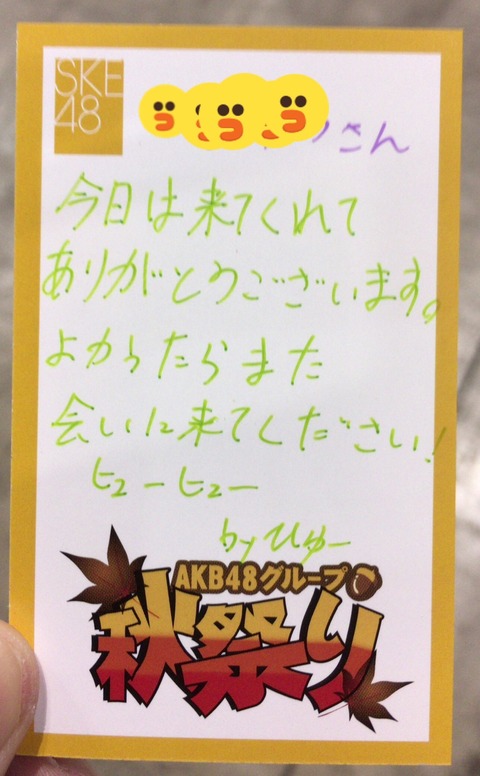 SKE
48
さん
今日は来てくれて
ありがとうございます。
よかったらまた
会いに来てください!
ヒューヒュー
byひゅー
AKB48グループ
秋祭り